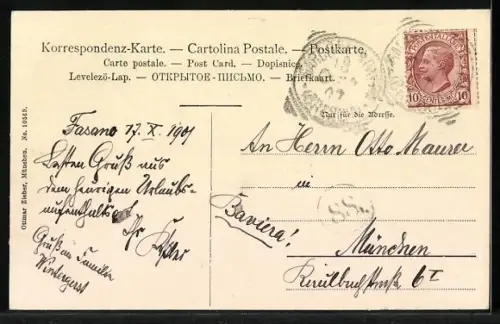 Korrespondenz-Karte. — Cartolina Postale. — Postkarte.
Carte postale. — Post Card. — Dopisnice.
Levelező-Lap. — ОТКРЫТОЕ-ПИСЬМО. — Briefkaart.
Nur für die Adresse.
Ottmar Zieher, München. No. 10519.
POSTE ITALIANE
10 CENTESIMI 10
Fasano 17. X. 1907
Besten Gruß aus
dem heurigen Urlaubs-
aufenthalt
Ihr
Gruß an Familie
Wintergerst
An Herrn Otto Maurer
in
Baviera!
88.
München
6 I